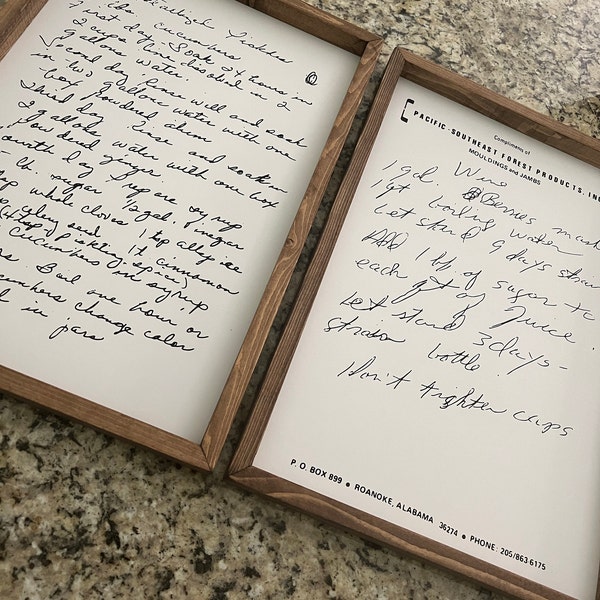 Pickles
7 lbs. cucumbers
First day - Soak 24 hours in
2 cups lime dissolved in 2
gallons water.
Second day rinse well and soak
in two gallons water with one
box powdered alum
Third day rinse and soak in
2 gallons water with one box
powdered ginger
Fourth day prepare syrup
lb. sugar, 1/2 gal. vinegar
whole cloves 1 tsp allspice
celery seed. 1 t. cinnamon
pickling spice
cucumbers in syrup
Boil one hour or
cucumbers change color
in jars
PACIFIC-SOUTHEAST FOREST PRODUCTS, INC
Compliments of
MOULDINGS and JAMBS
Wine
1 gal. Berries mash
1 qt boiling water
Let stand 9 days strain
Add 1 lb. of sugar to
each qt of juice.
Let stand 3 days -
strain bottle.
Don't tighten caps
P. O. BOX 899 • ROANOKE, ALABAMA 36274 • PHONE: 205/863-6175